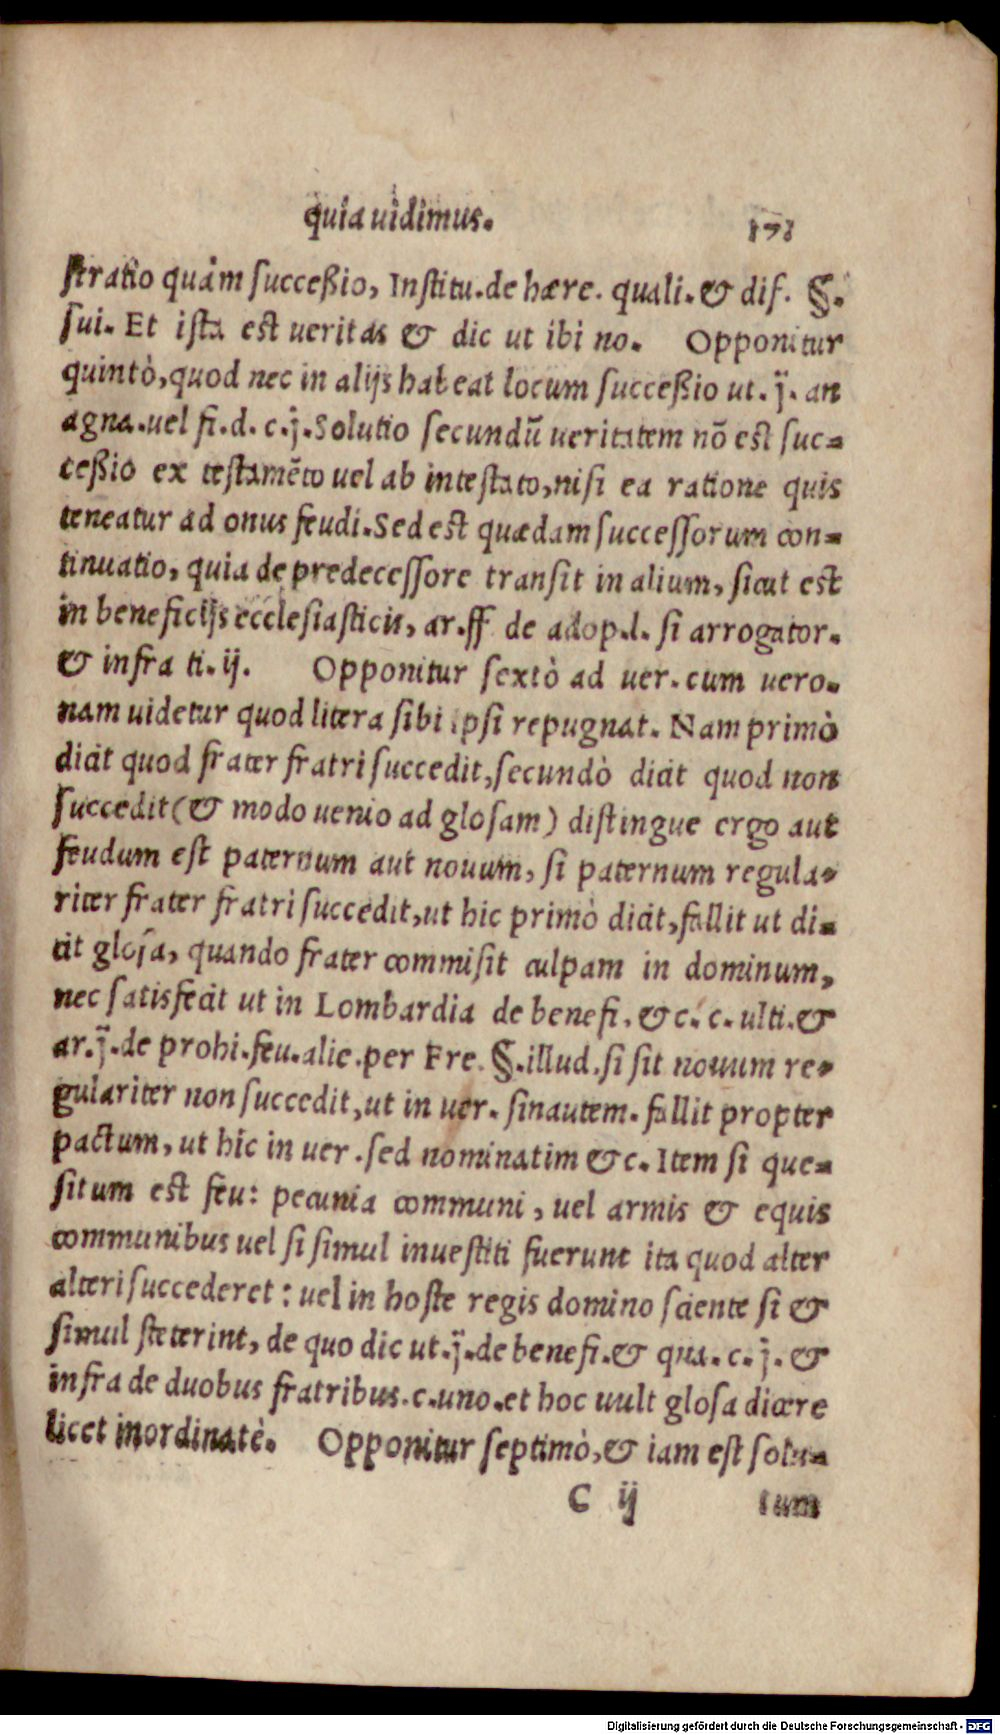 quia uidimus. 171
stratio quàm succeßio, Institu.de hære. quali.& dif. §.
sui. Et ista est ueritas & dic ut ibi no. Opponitur
quintò,quod nec in alijs habeat locum succeßio ut.j̈. an
agna.uel fi.d. c.j̈.Solutio secundũ ueritatem nõ est suc-
ceßio ex testamẽto uel ab intestato,nisi ea ratione quis
teneatur ad onus feudi.Sed est quædam successorum con-
tinuatio, quia de predecessore transit in alium, sicut est
in beneficijs ecclesiasticis, ar.ff de adop.l. si arrogator.
& infra ti.ij. Opponitur sextò ad uer.cum uero.
nam uidetur quod litera sibi ipsi repugnat. Nam primò
dicit quod frater fratri succedit,secundò dicit quod non
succedit(& modo uenio ad glosam) distingue ergo aut
feudum est paternum aut nouum, si paternum regula-
riter frater fratri succedit,ut hic primò dicit,fallit ut di-
cit glosa, quando frater commisit culpam in dominum,
nec satisfecit ut in Lombardia de benefi. &c. c. ulti.&
ar.j̈.de prohi.feu.alie.per Fre. §.illud.si sit nouum re-
gulariter non succedit,ut in uer. sinautem. fallit propter
pactum, ut hic in uer.sed nominatim &c. Item si que-
situm est feu: pecunia communi, uel armis & equis
communibus uel si simul inuestiti fuerunt ita quod alter
alteri succederet: uel in hoste regis domino sciente si &
simul steterint, de quo dic ut.j̈.de benefi.& qua.c.j̈. &
infra de duobus fratribus.c.uno.et hoc uult glosa dicere
licet inordinatè. Opponitur septimò,& iam est solu-
C ij tum
Digitalisierung gefördert durch die Deutsche Forschungsgemeinschaft - DFG